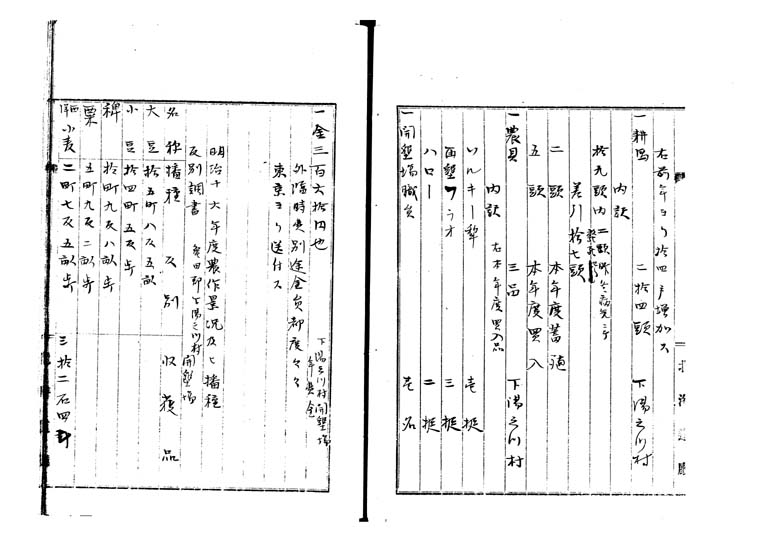 右前年ヨリ拾四戸増加ス
一耕馬 二拾四頭 下湯之川村
内訳
拾九頭内二頭昨冬病死ニ付
差引拾七頭
二頭 本年度蓄殖
五頭 本年度買入
一農具 三品 下湯之川村
内訳 右本年度買入品
ソルキー犂 壱挺
再墾プラオ 三挺
ハロー 二挺
一開墾場職員 壱名
一金三百六拾円也 下湯之川村開墾場年費金
外臨時費別途金員都度々々
東京ヨリ送付ス
明治十六年度農作景況及ヒ播種
反別調書 亀田郡下湯之川村開墾場
名称 播種反別 収穫品
大豆 拾五町八反五畝
小豆 拾四町五反歩
稗 拾町九反八畝歩
粟 五町九反二畝歩
小麦 二町七反五畝歩 三拾二石四斗